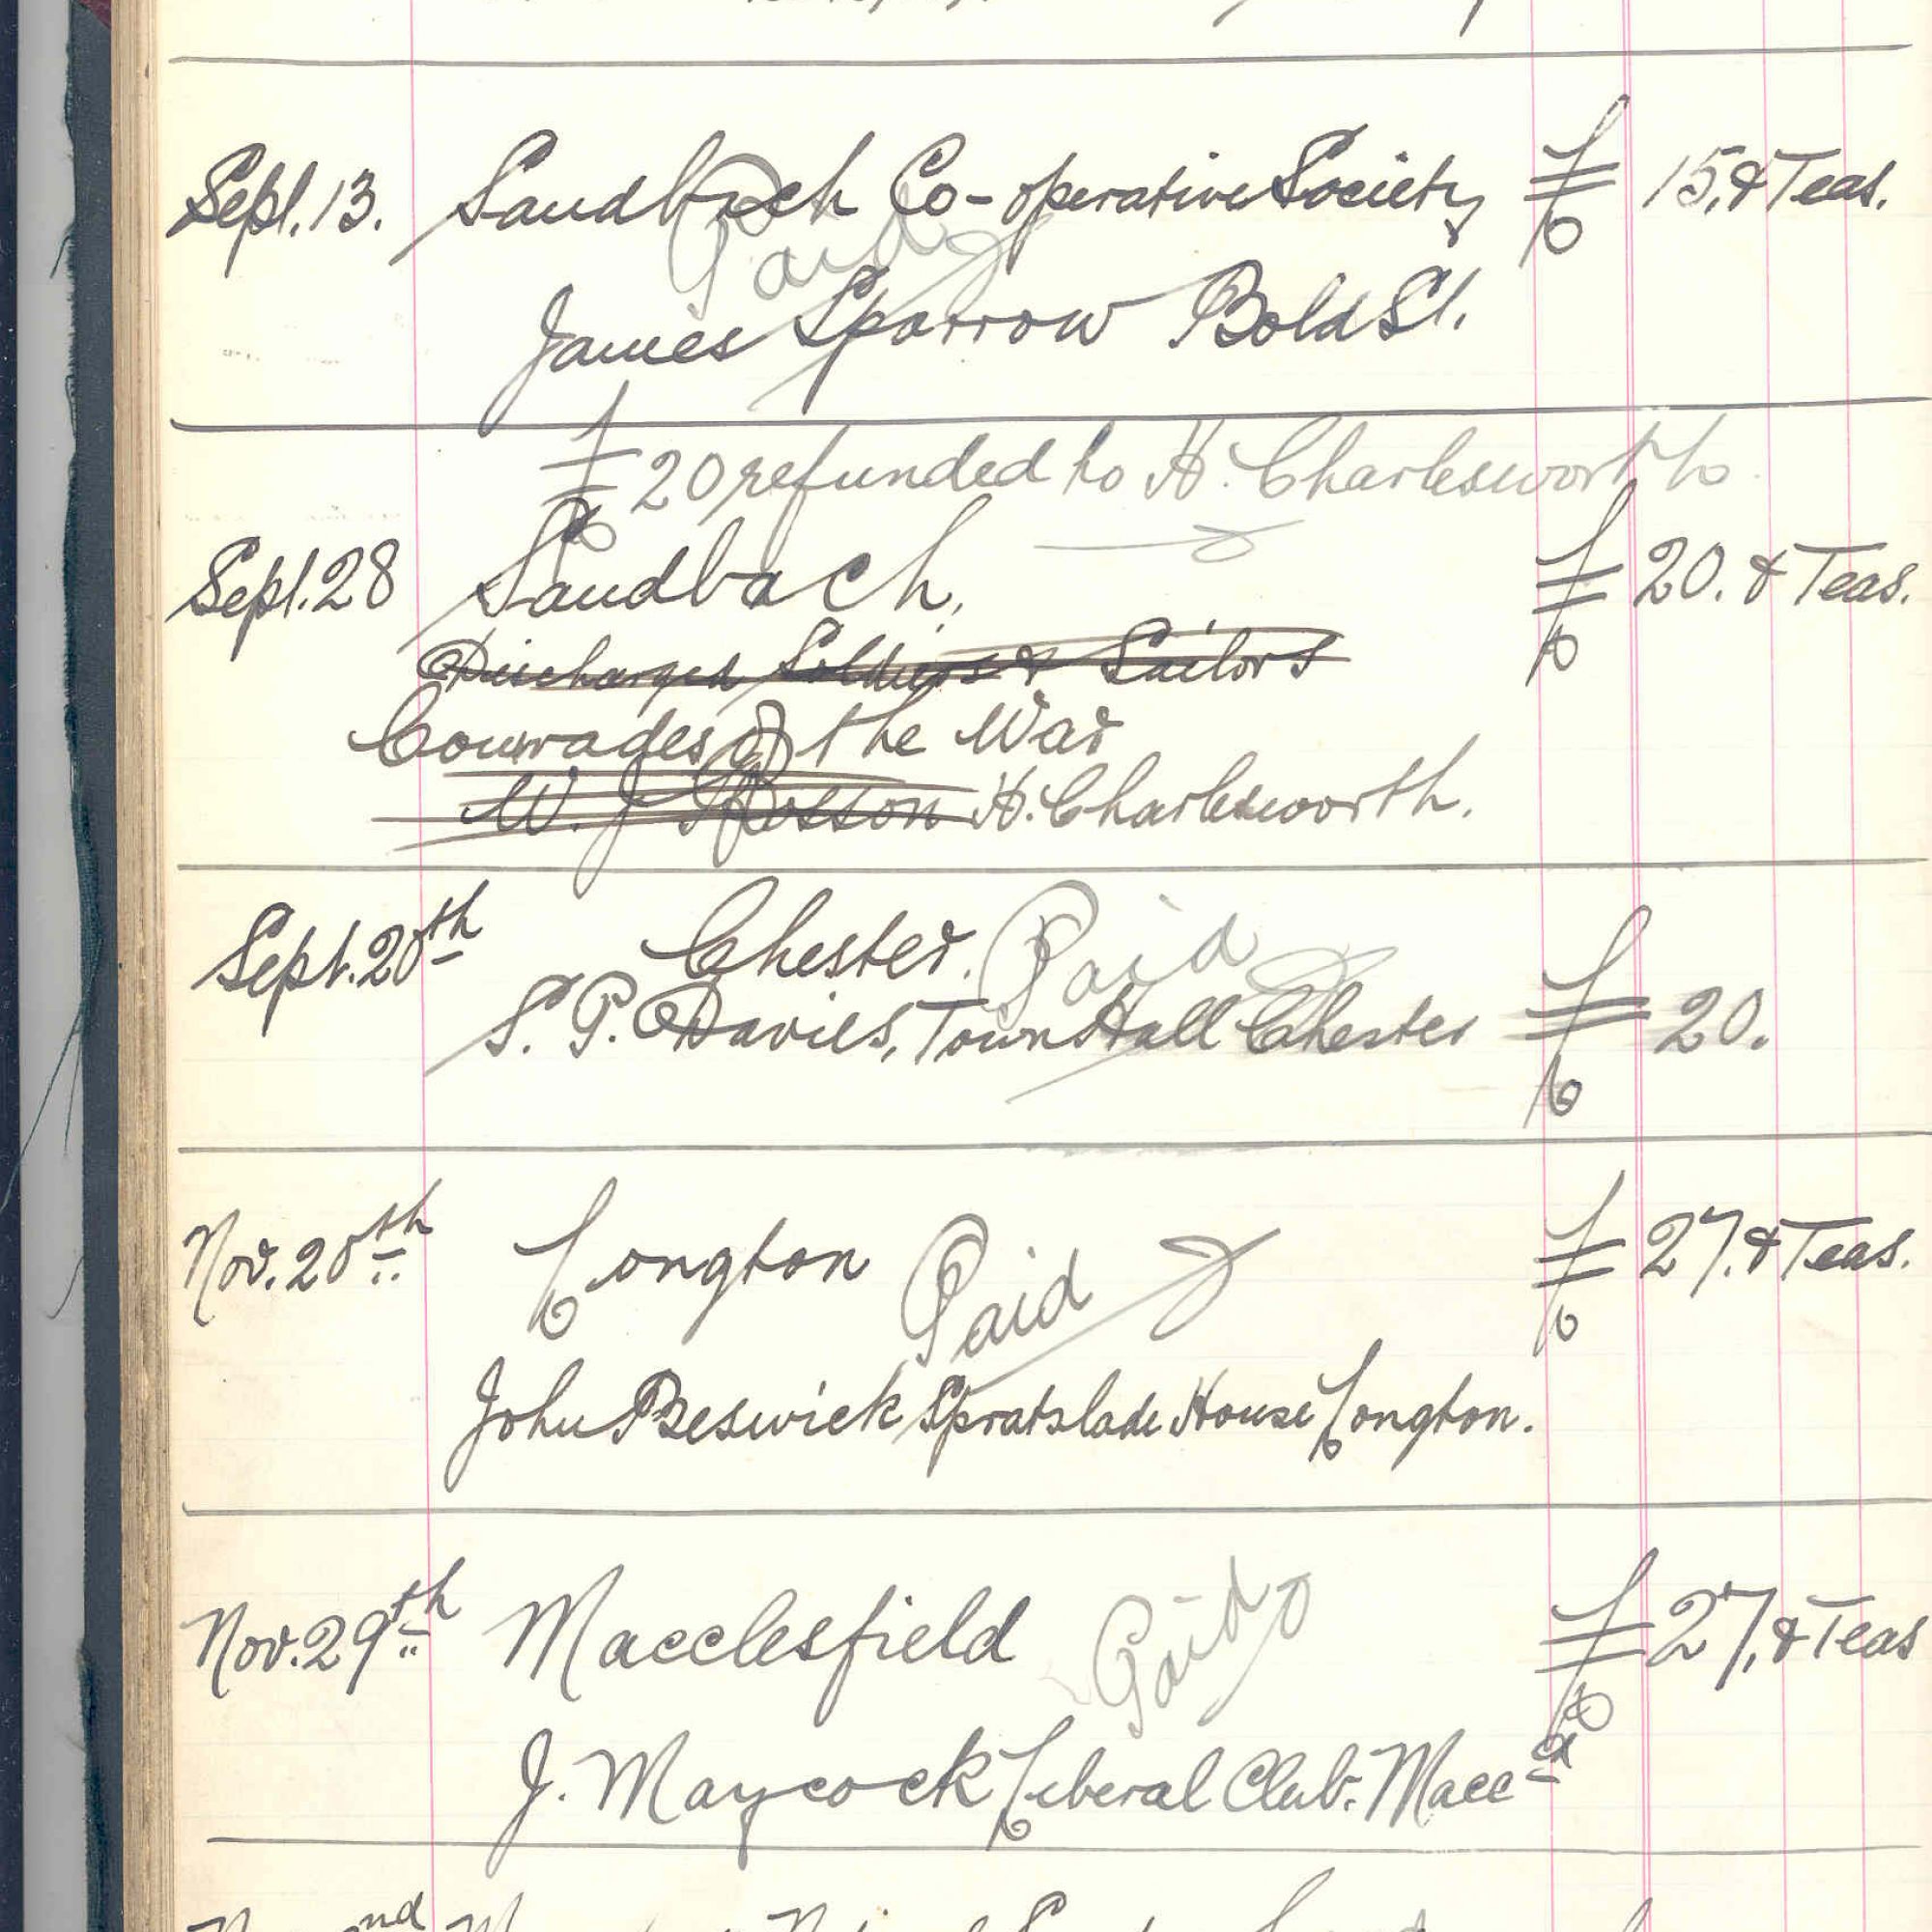 Sept. 13. Sandbach Co-operative Society £ 15. & Teas.
Paid
James Sparrow Bold St.
£20 refunded to H. Charlesworth
Sept. 28 Sandbach. £ 20. & Teas.
Discharged Soldiers & Sailors
Comrades of the War
W. J. Rosson H. Charlesworth.
Sept. 20th Chester. Paid
S. P. Davies, Town Hall Chester £ 20.
Nov. 20th Longton Paid £ 27. & Teas.
John Beswick Spratslade House Longton.
Nov. 29th Macclesfield Paid £ 27. & Teas
J. Maycock Liberal Club. Maccd